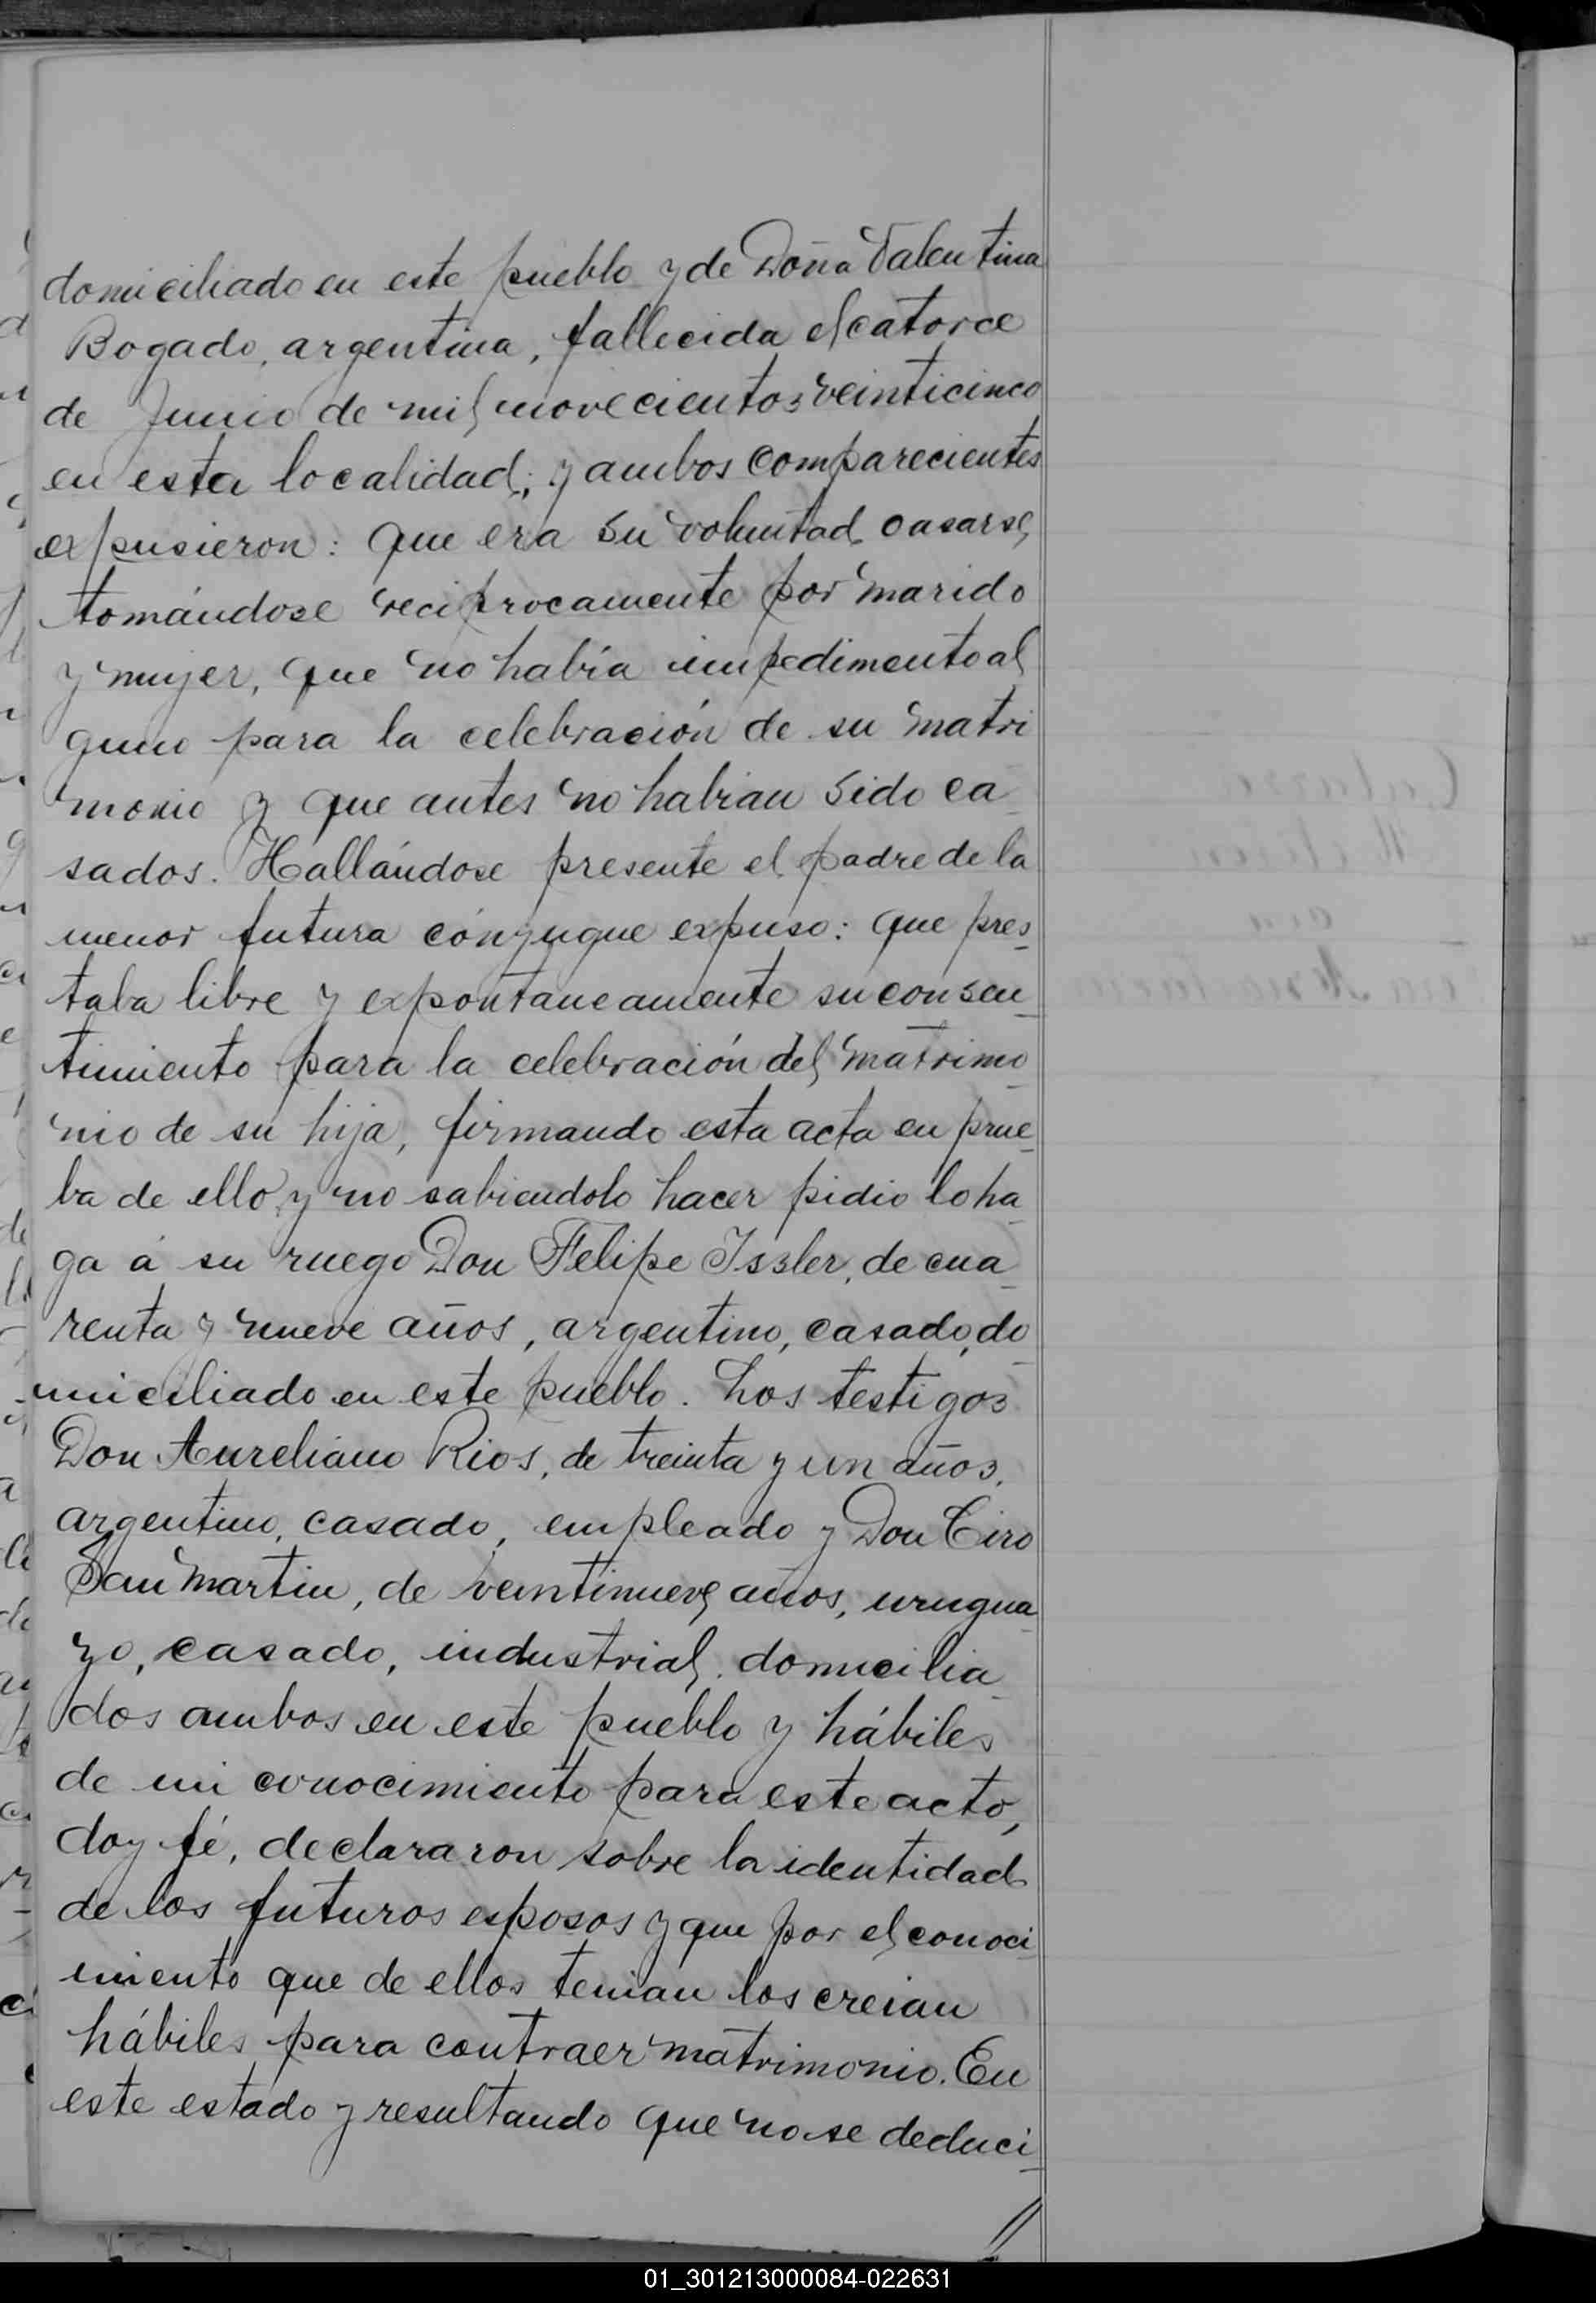 domiciliado en este pueblo y de Doña Valentina
Bogado, argentina, fallecida el catorce
de Junio de mil novecientos veinticinco
en esta localidad; y ambos comparecientes
expusieron: que era su voluntad casarse,
tomándose reciprocamente por marido
y mujer, que no había impedimento al
guno para la celebración de su matri
monio y que antes no habian sido ca
sados. Hallándose presente el padre de la
menor futura cónyugue expuso: que pres_
taba libre y expontaneamente su consen_
timiento para la celebración del matrimo_
nio de su hija, firmando esta acta en prue_
ba de ello y no sabiendolo hacer pidio lo ha_
ga á su ruego Don Felipe Issler, de cua_
renta y nueve años, argentino, casado, do_
miciliado en este pueblo. Los testigos
Don Aureliano Rios, de treinta y un años,
argentino, casado, empleado y Don Ciro
San Martin, de veintinueve años, urugua_
yo, casado, industrial, domicilia_
dos ambos en este pueblo y hábiles
de mi conocimiento para este acto,
doy fé, declararon sobre la identidad
de los futuros esposos y que por el conoci_
miento que de ellos tenian los creian
hábiles para contraer matrimonio. En
este estado y resultando que no se deduci_
//
01_301213000084-022631